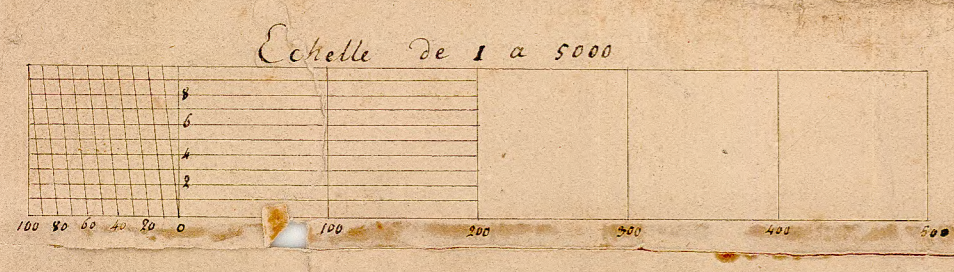 Echelle de 1 a 5000
8
6
4
2
100 80 60 40 20 0 100 200 300 400 500